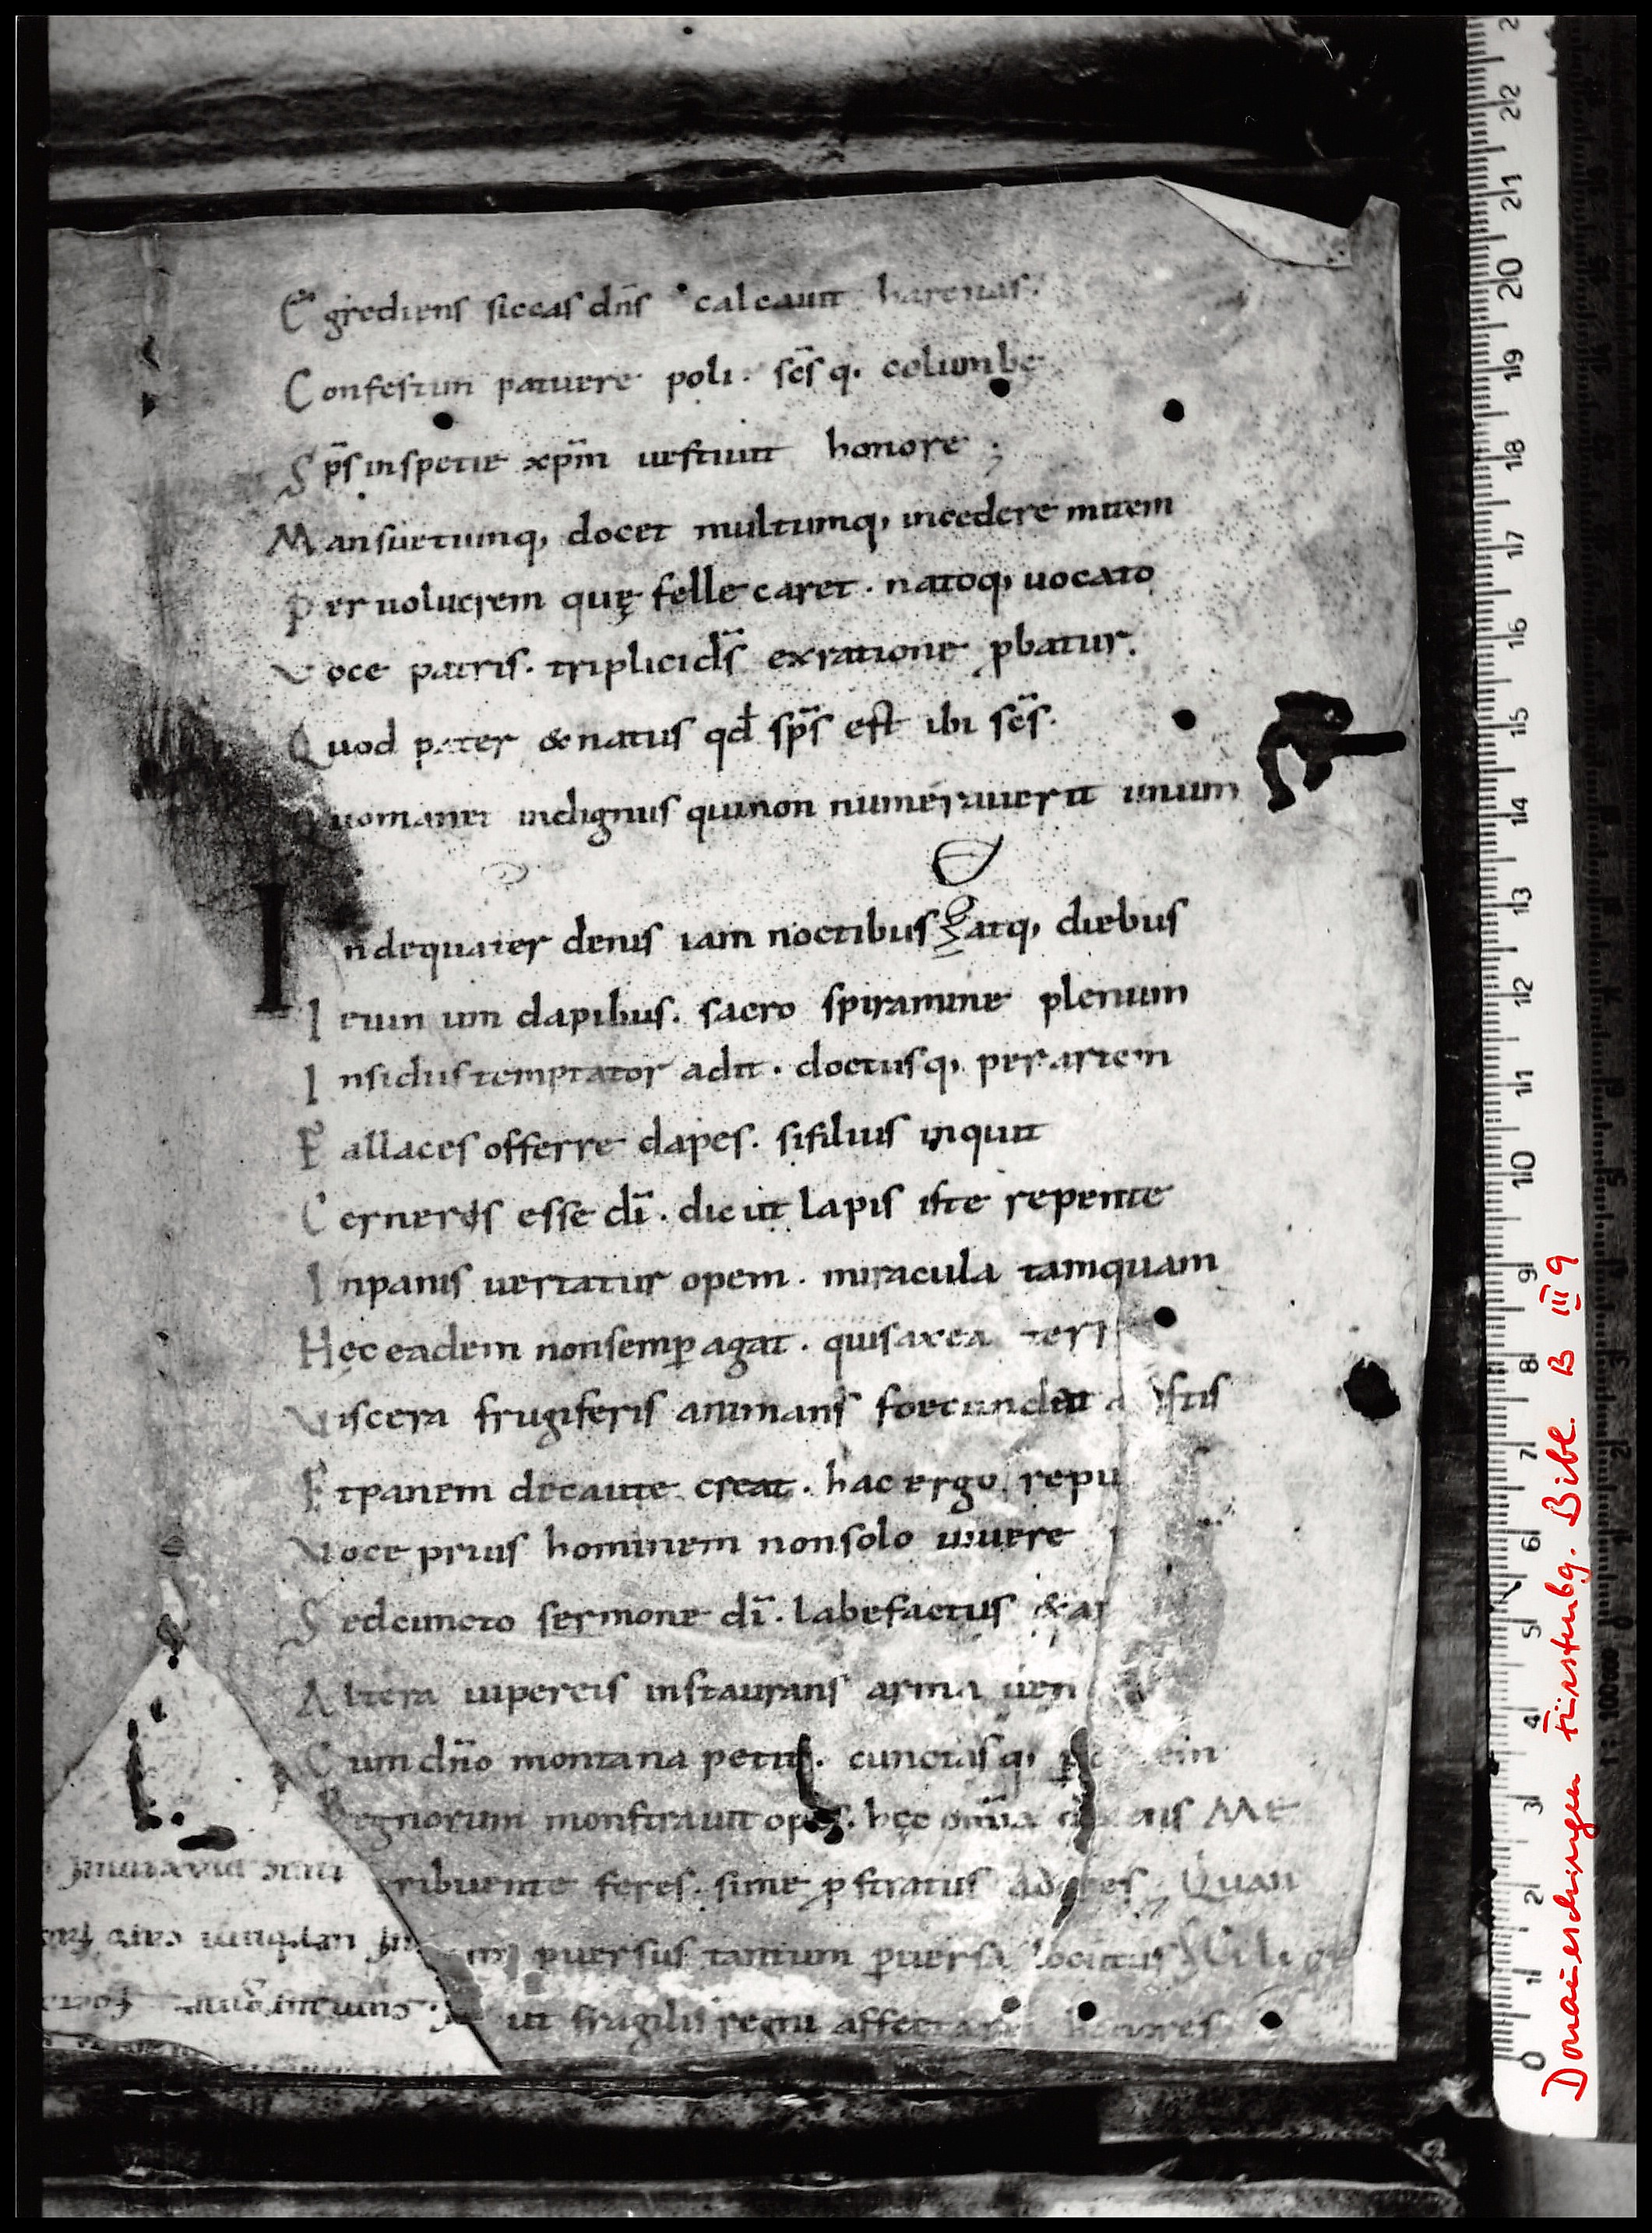 Egrediens siccas dñs calcauit harenas.
Confestim patuere poli. sc̃sq. columbe
Sp̃s inspetie xp̃m uestiuit honore ;
Mansuetumq, docet multumq, incedere mitem
Per uolucrem quę felle caret. natoq, uocato
Voce patris. triplici dš ex ratione ꝓbatur.
Quod pater & natus qđ sp̃s est ibi sc̃s.
Quo manet indignus qui non numerauerit unum
Inde quater denis iam noctibus atq, diebus
Ieiunium dapibus. sacro spiramine plenum
Insidiis temptator adit. doctusq, per artem
Fallaces offerre dapes. si filius inquit
Cerneris esse dī. dic ut lapis iste repente
In panis uertatur opem. miracula tamquam
Hęc eadem non semꝑ agat. qui saxea terr
Viscera frugiferis animans fecundat aristis
Et panem de caute creat. hac ergo repu
Voce prius hominem non solo uiuere
Sed cuncto sermone dī. labefactus & ar
Altera uipereis instaurans arma uen
Cum dño montana petit. cunctasq, ꝑ
Regnorum monstrauit opes. hęc omīa ais Me
tribuente feres. si me ꝓstratus adores; Quam
ꝑuersus tantum ꝑuersa locutus
ut fragilis regni affectaret honores
Donaueschingen Fürstenbg. Bibl. B III 9
0 1 2 3 4 5 6 7 8 9 10 11 12 13 14 15 16 17 18 19 20 21 22 2